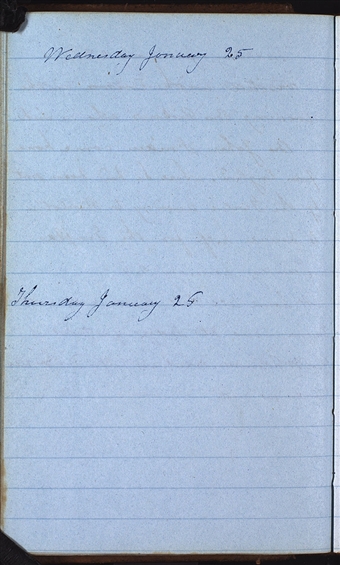 Wednesday January 25
Thursday January 26